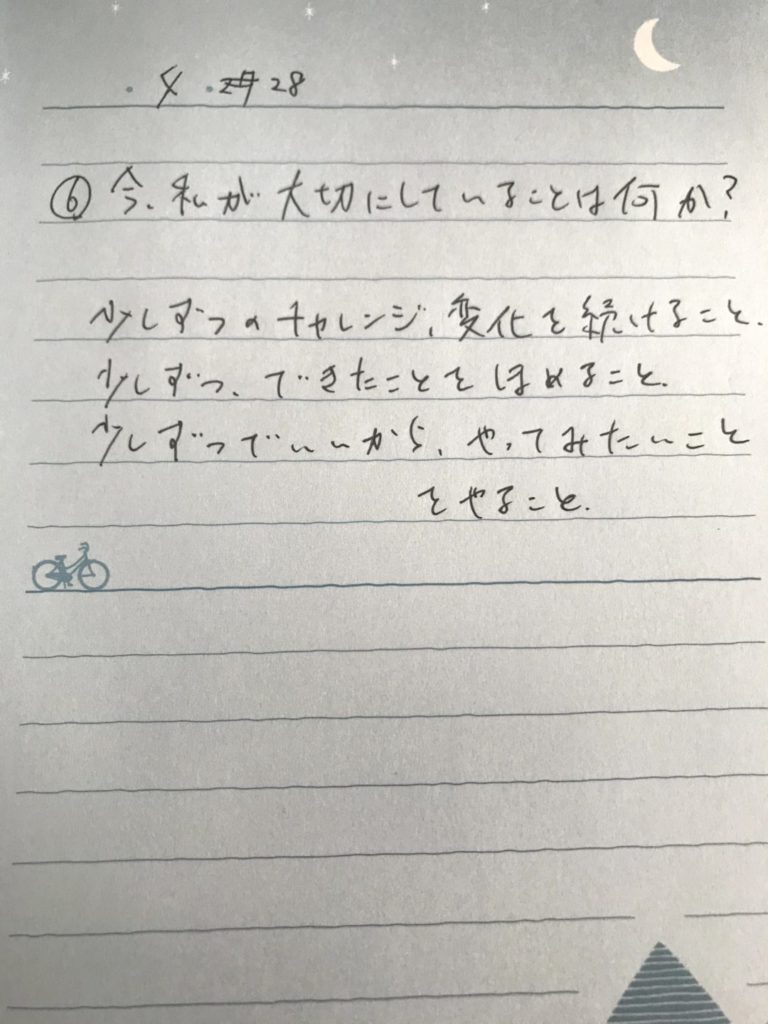 ・4・28
⑥ 今、私が大切にしていることは何か？
少しずつのチャレンジ、変化を続けること。
少しずつ、できたことをほめること。
少しずつでいいから、やってみたいこと
をやること。